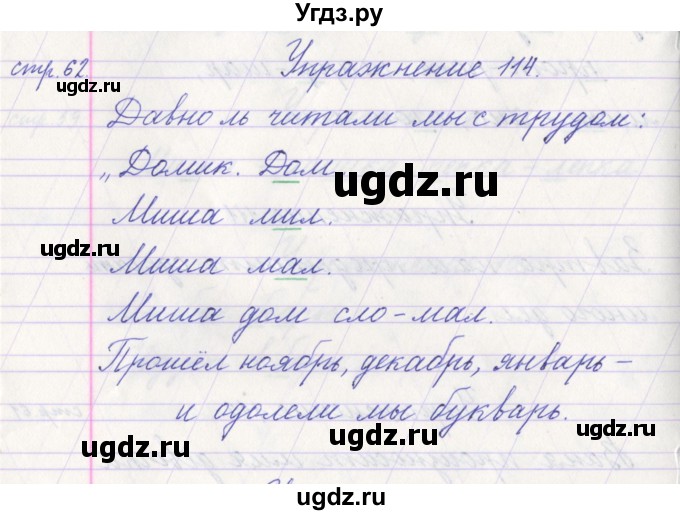 Угдз.ру
стр. 62 Упражнение 114.
Давно ль читали мы с трудом:
„Домик. Дом
ugdz.ru ugdz.ru
Миша мил.
ugdz.ru
Миша мал.
ugdz.ru
Миша дом сло-мал.
Прошёл ноябрь, декабрь, январь –
и одолели мы букварь.
ugdz.ru ugdz.ru
ugdz.ru